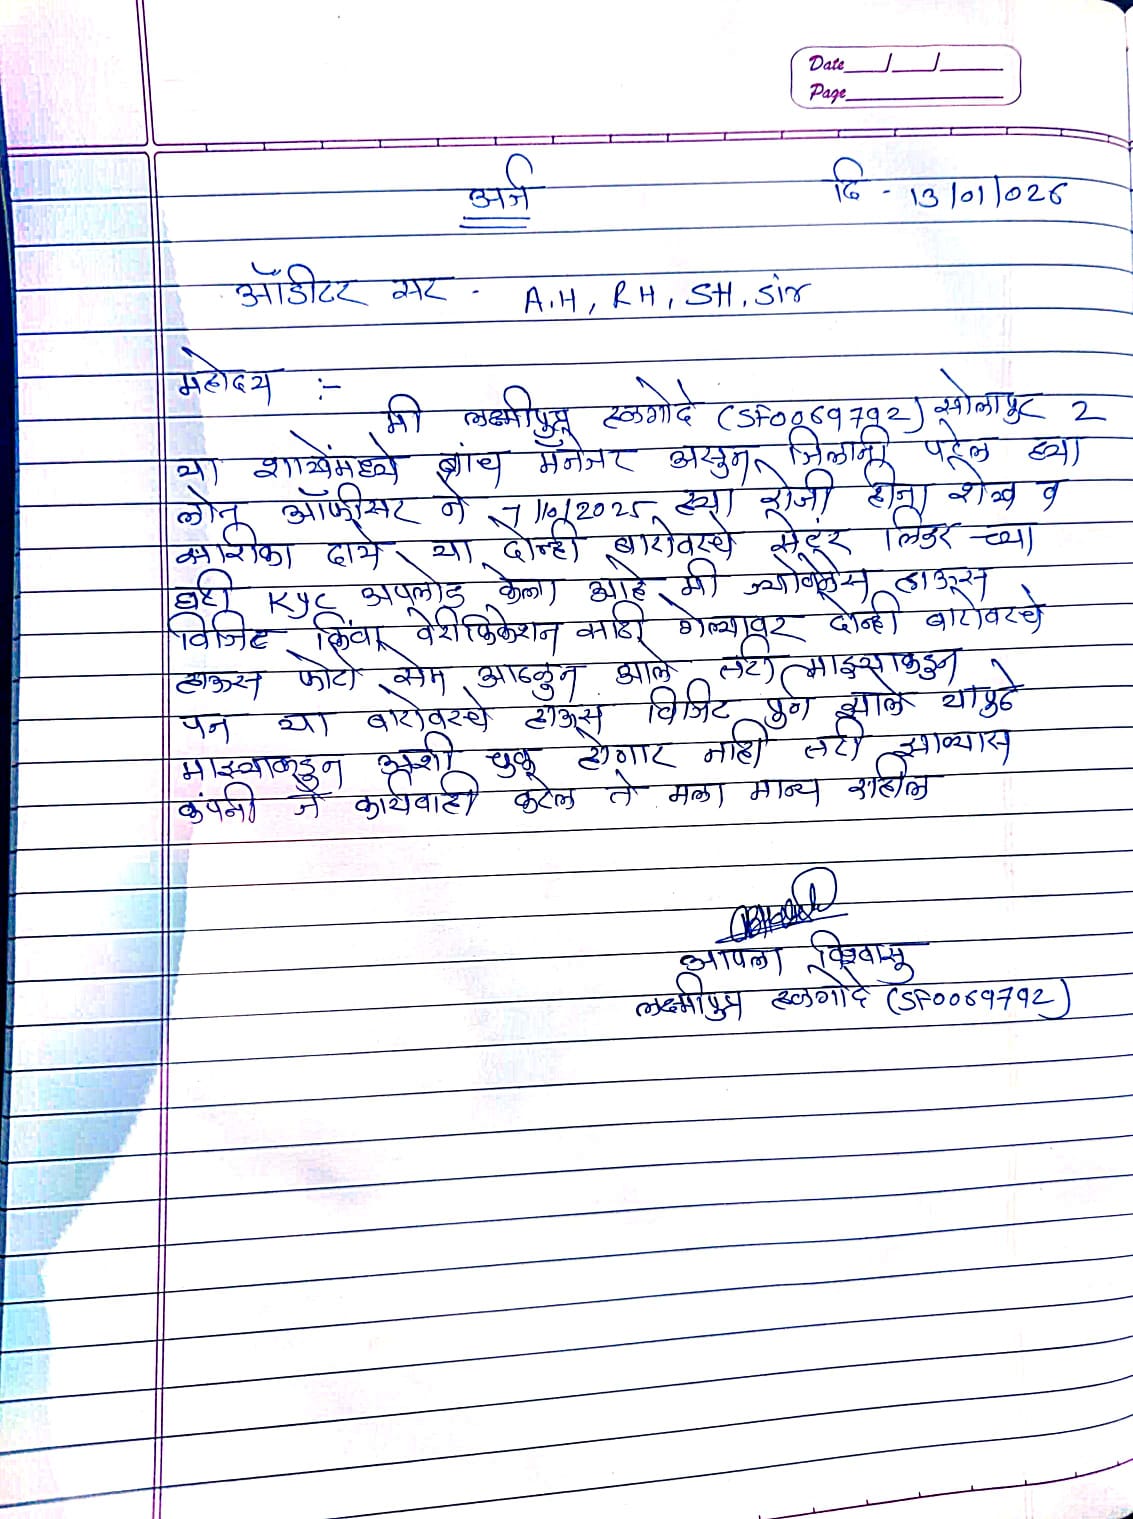 Date __/__/__
Page
अर्ज
दि - 13/01/026
ऑडीटर सर - A.H, RH, SH, Sir
महोदय :-
मी लक्ष्मीपुत्र हळगोदे (SF0069792) सोलापुर 2
या शाखेंमध्ये ब्रांच मॅनेजर असुन जिलानी पटेल ह्या
लोन ऑफीसर ने 7/10/2025 ह्या रोजी हीना शेख व
सारीका दामे या दोन्ही बारोवरचे सेंटर लिडर च्या
घरी KYC अपलोड केला आहे मी हाऊस
विजिट किंवा वेरीफिकेशन साठी गेल्यावर दोन्ही बारोवरचे
हाऊस फोटो सेम आढळुन आले तरी माझ्याकडुन
पन या बारोवरचे हाऊस विजिट पुर्ण झाले यापुढे
माझ्याकडुन अशी चुक होणार नाही तरी झाल्यास
कंपनी जे कार्यवाही करेल ते मला मान्य राहील
आपला विश्वासु
लक्ष्मीपुत्र हळगोदे (SF0069792)